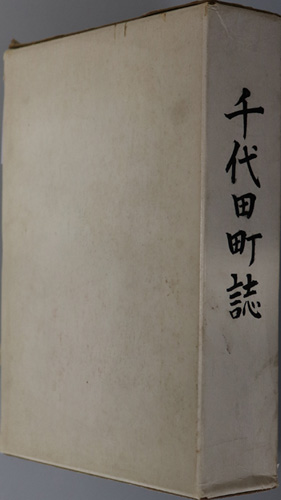 千代田町誌